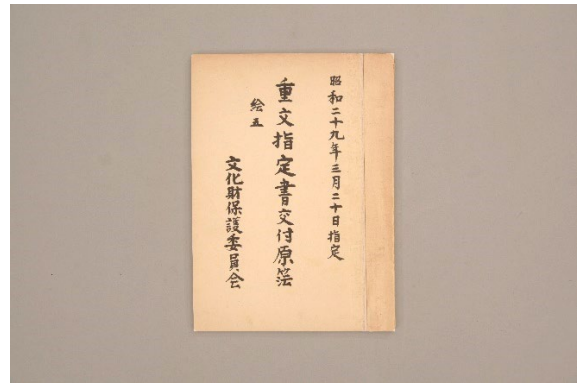 昭和二十九年三月二十日指定
重文指定書交付原簿
絵五
文化財保護委員会